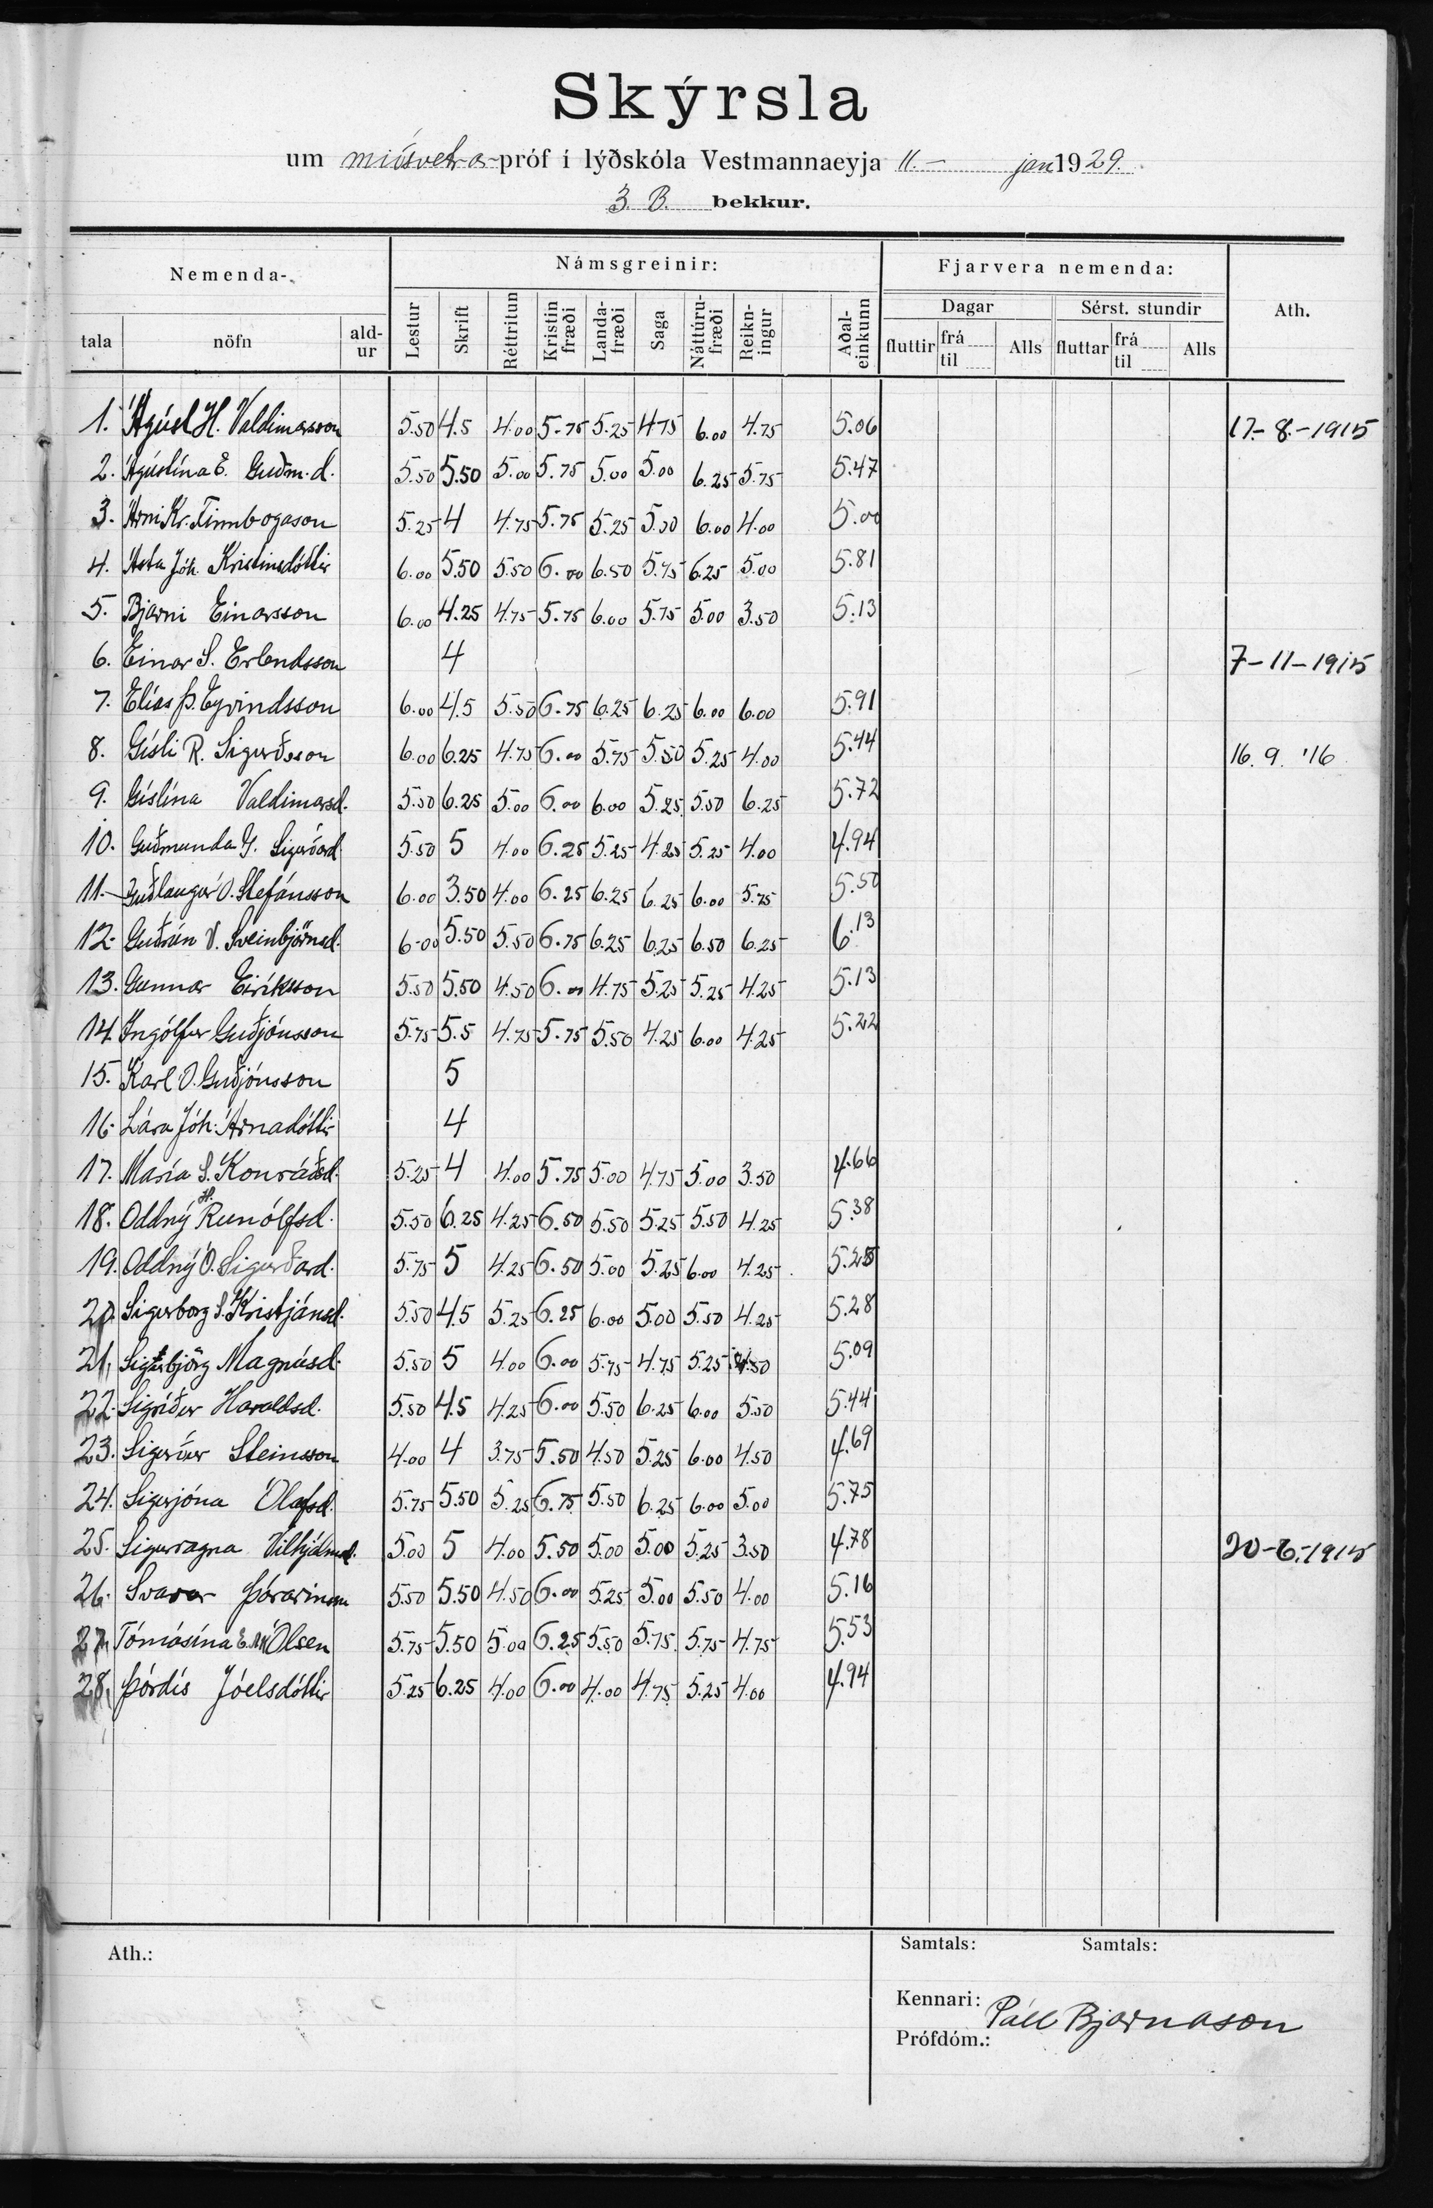 Skýrsla
um miðsvetrar-próf í lýðskóla Vestmannaeyja 11.- jan 1929.
3. B. bekkur.
Nemenda- Námsgreinir: Fjarvera nemenda: Ath.
tala nöfn ald-ur Lestur Skrift Réttritun Kristin fræði Landa-fræði Saga Náttúru-fræði Reikn-ingur Aðal-einkunn Dagar Sérst. stundir
fluttir frá til Alls fluttar frá til Alls
1. Ágúst H. Valdimarsson 5.50 4.5 4.00 5.75 5.25 4.75 6.00 4.75 5.06 17.-8.-1915
2. Ágústína E. Guðm.d. 5.50 5.50 5.00 5.75 5.00 5.00 6.25 5.75 5.47
3. Árni Kr. Finnbogason 5.25 4 4.75 5.75 5.25 5.00 6.00 4.00 5.00
4. Ásta Jóh. Kristinsdóttir 6.00 5.50 5.50 6.00 6.50 5.75 6.25 5.00 5.81
5. Bjarni Einarsson 6.00 4.25 4.75 5.75 6.00 5.75 5.00 3.50 5.13
6. Einar S. Erlendsson 4 7-11-1915
7. Elías Þ. Eyvindsson 6.00 4.5 5.50 6.75 6.25 6.25 6.00 6.00 5.91
8. Gísli R. Sigurðsson 6.00 6.25 4.75 6.00 5.75 5.50 5.25 4.00 5.44 16. 9. '16
9. Gíslína Valdimarsd. 5.50 6.25 5.00 6.00 6.00 5.25 5.50 6.25 5.72
10. Guðmunda G. Sigurðard. 5.50 5 4.00 6.25 5.25 4.25 5.25 4.00 4.94
11. Guðlaugur O. Stefánsson 6.00 3.50 4.00 6.25 6.25 6.25 6.00 5.75 5.50
12. Guðrún V. Sveinbjörnsd. 6.00 5.50 5.50 6.75 6.25 6.25 6.50 6.25 6.13
13. Gunnar Eiríksson 5.50 5.50 4.50 6.00 4.75 5.25 5.25 4.25 5.13
14. Ingólfur Guðjónsson 5.75 5.5 4.75 5.75 5.50 4.25 6.00 4.25 5.22
15. Karl O. Guðjónsson 5
16. Lára Jóh. Árnadóttir 4
17. María S. Konráðsd. 5.25 4 4.00 5.75 5.00 4.75 5.00 3.50 4.66
18. Oddný H. Runólfsd. 5.50 6.25 4.25 6.50 5.50 5.25 5.50 4.25 5.38
19. Oddný Ó. Sigurðard. 5.75 5 4.25 6.50 5.00 5.25 6.00 4.25
20. Sigurborg S. Kristjánsd. 5.50 4.5 5.25 6.25 6.00 5.00 5.50 4.25 5.28
21. Sigurbjörg Magnúsd. 5.50 5 4.00 6.00 5.75 4.75 5.25 4.50 5.09
22. Sigríður Haraldsd. 5.50 4.5 4.25 6.00 5.50 6.25 6.00 5.50 5.44
23. Sigurður Steinsson 4.00 4 3.75 5.50 4.50 5.25 6.00 4.50 4.69
24. Sigurjóna Ólafsd. 5.75 5.50 5.25 6.75 5.50 6.25 6.00 5.00 5.75
25. Sigurragna Vilhjálmsd. 5.00 5 4.00 5.50 5.00 5.00 5.25 3.50 4.78 20-6.-1915
26. Svavar Þórarinsson 5.50 5.50 4.50 6.00 5.25 5.00 5.50 4.00 5.16
27. Tómasína E. Olsen 5.75 5.50 5.00 6.25 5.50 5.75 5.75 4.75 5.53
28. Þórdís Jóelsdóttir 5.25 6.25 4.00 6.00 4.00 4.75 5.25 4.00 4.94
Ath.: Samtals: Samtals:
Kennari: Páll Bjarnason
Prófdóm.: